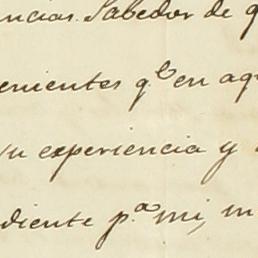 ncias. Sabedor de q
enientes q.e en aq
su experiencia y
diente p.a mi, m